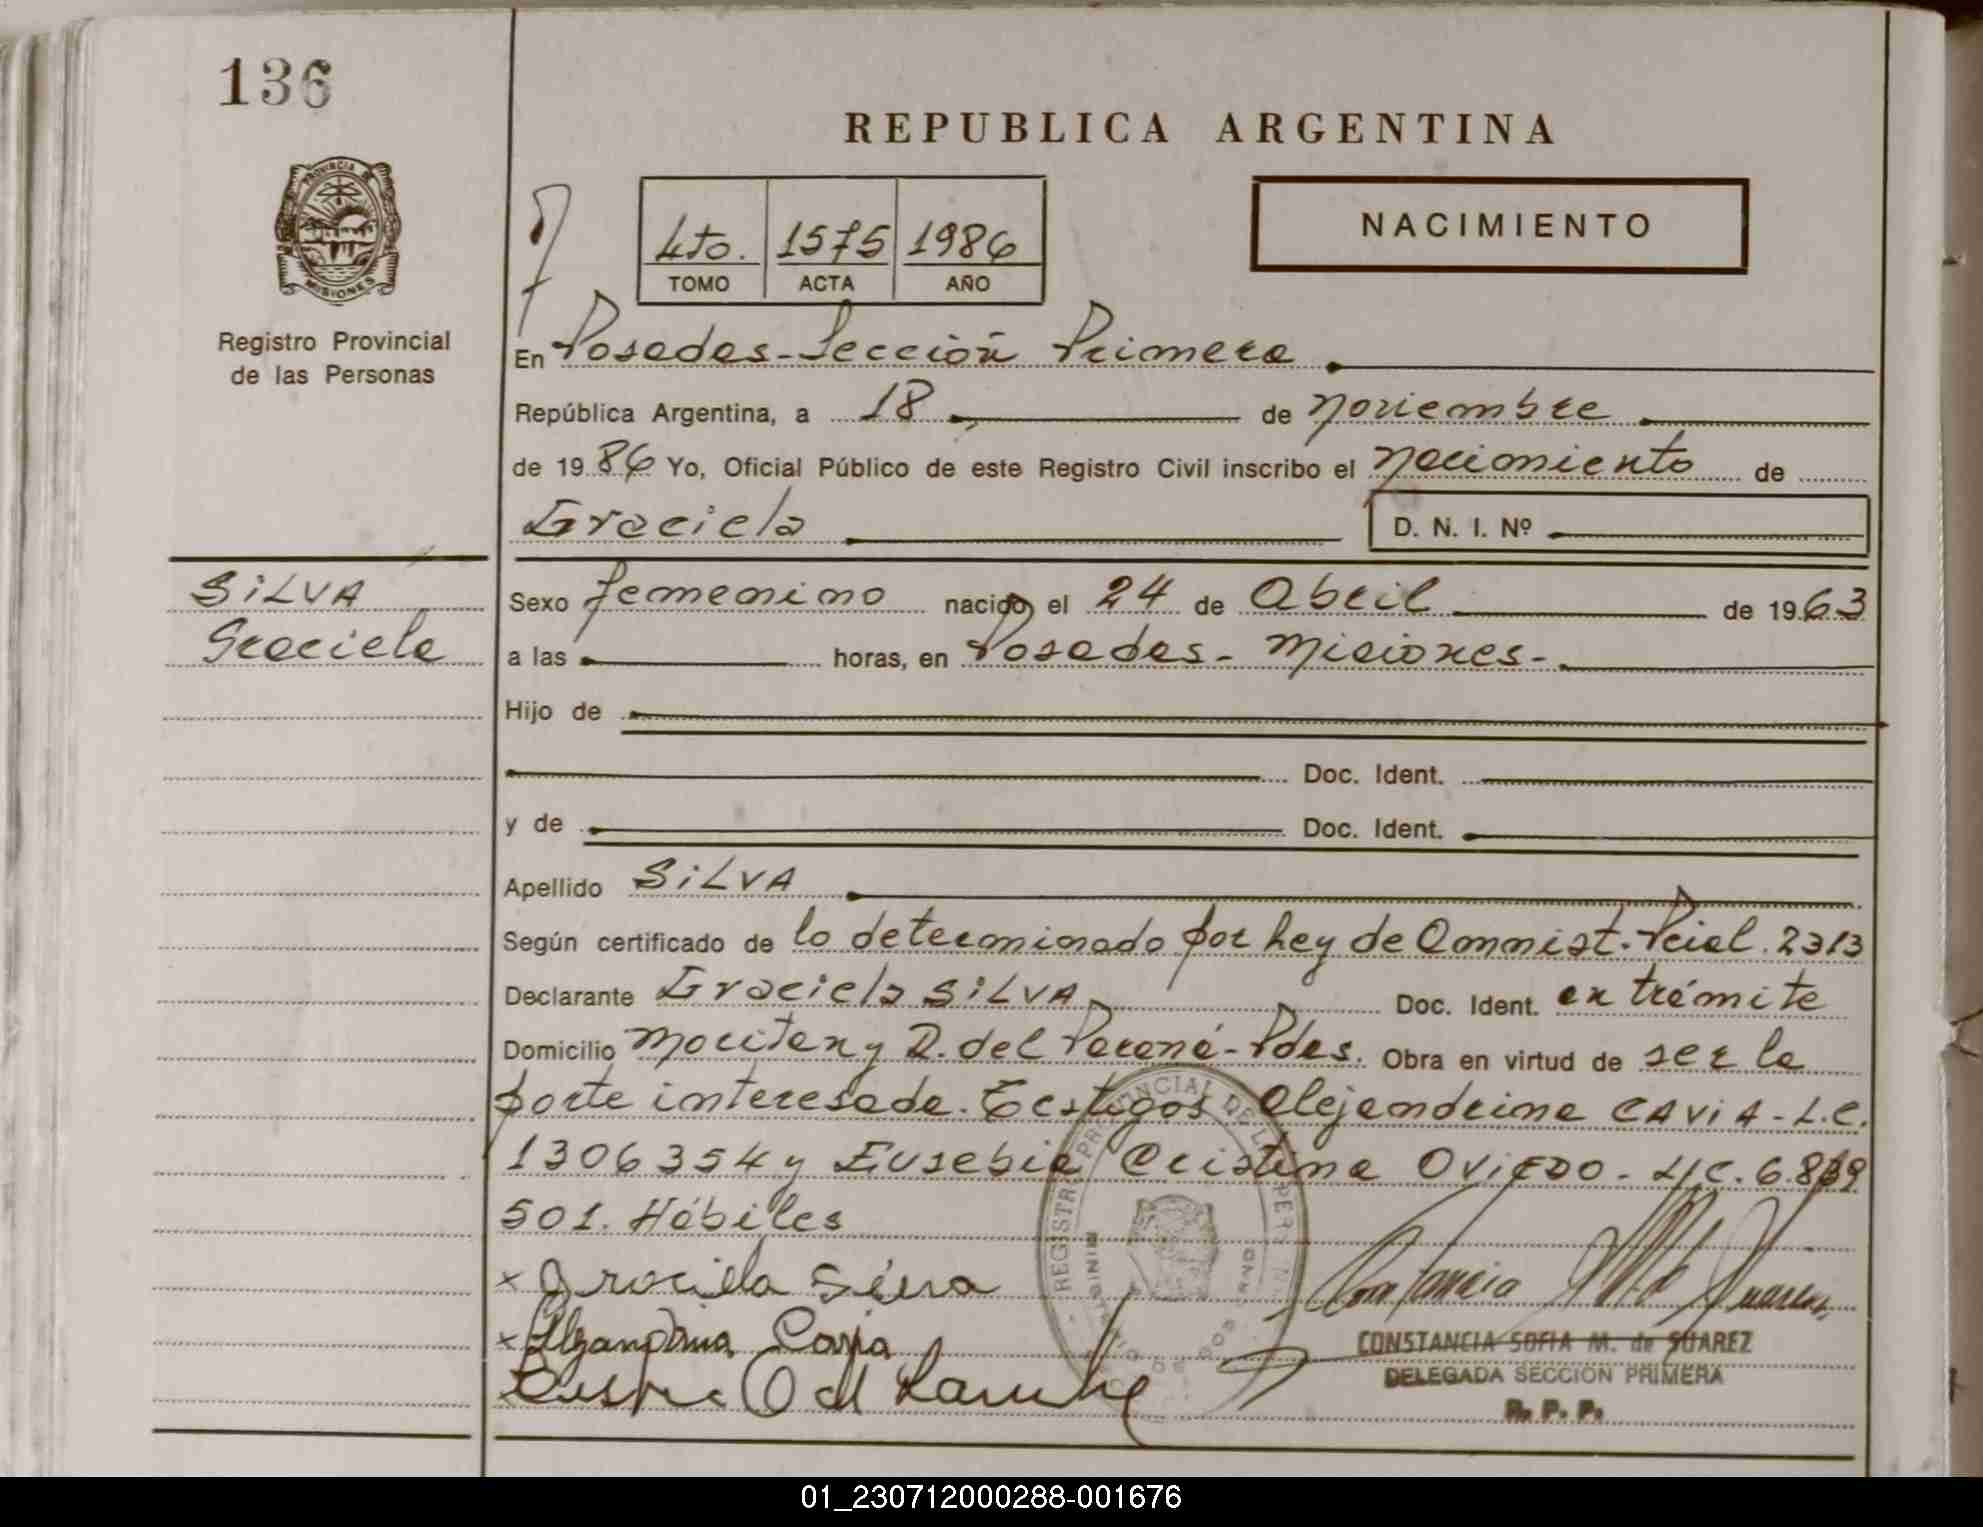 136
REPUBLICA ARGENTINA
PROVINCIA DE
MISIONES
Registro Provincial
de las Personas
4to. 1575 1986
TOMO ACTA AÑO
NACIMIENTO
En Posadas - Sección Primera
República Argentina, a 18 de noviembre
de 1986 Yo, Oficial Público de este Registro Civil inscribo el nacimiento de
Graciela D. N. I. Nº
SILVA
Graciela
Sexo femenino nacido el 24 de Abril de 1963
a las horas, en Posadas - Misiones -
Hijo de
Doc. Ident.
y de Doc. Ident.
Apellido SILVA
Según certificado de lo determinado por Ley de Amnist. Pcial. 2313
Declarante Graciela SILVA Doc. Ident. en trámite
Domicilio y R. del Paraná - Pdas. Obra en virtud de ser la
parte interesada. Testigos Alejandrina CAVIA - L.C.
1306354 y Eusebia Cristina OVIEDO - L.C. 6.839
501. Hábiles
x Graciela Silva
x Alejandrina Cavia
CONSTANCIA SOFIA M. de SUAREZ
DELEGADA SECCION PRIMERA
R. P. P.
01_230712000288-001676